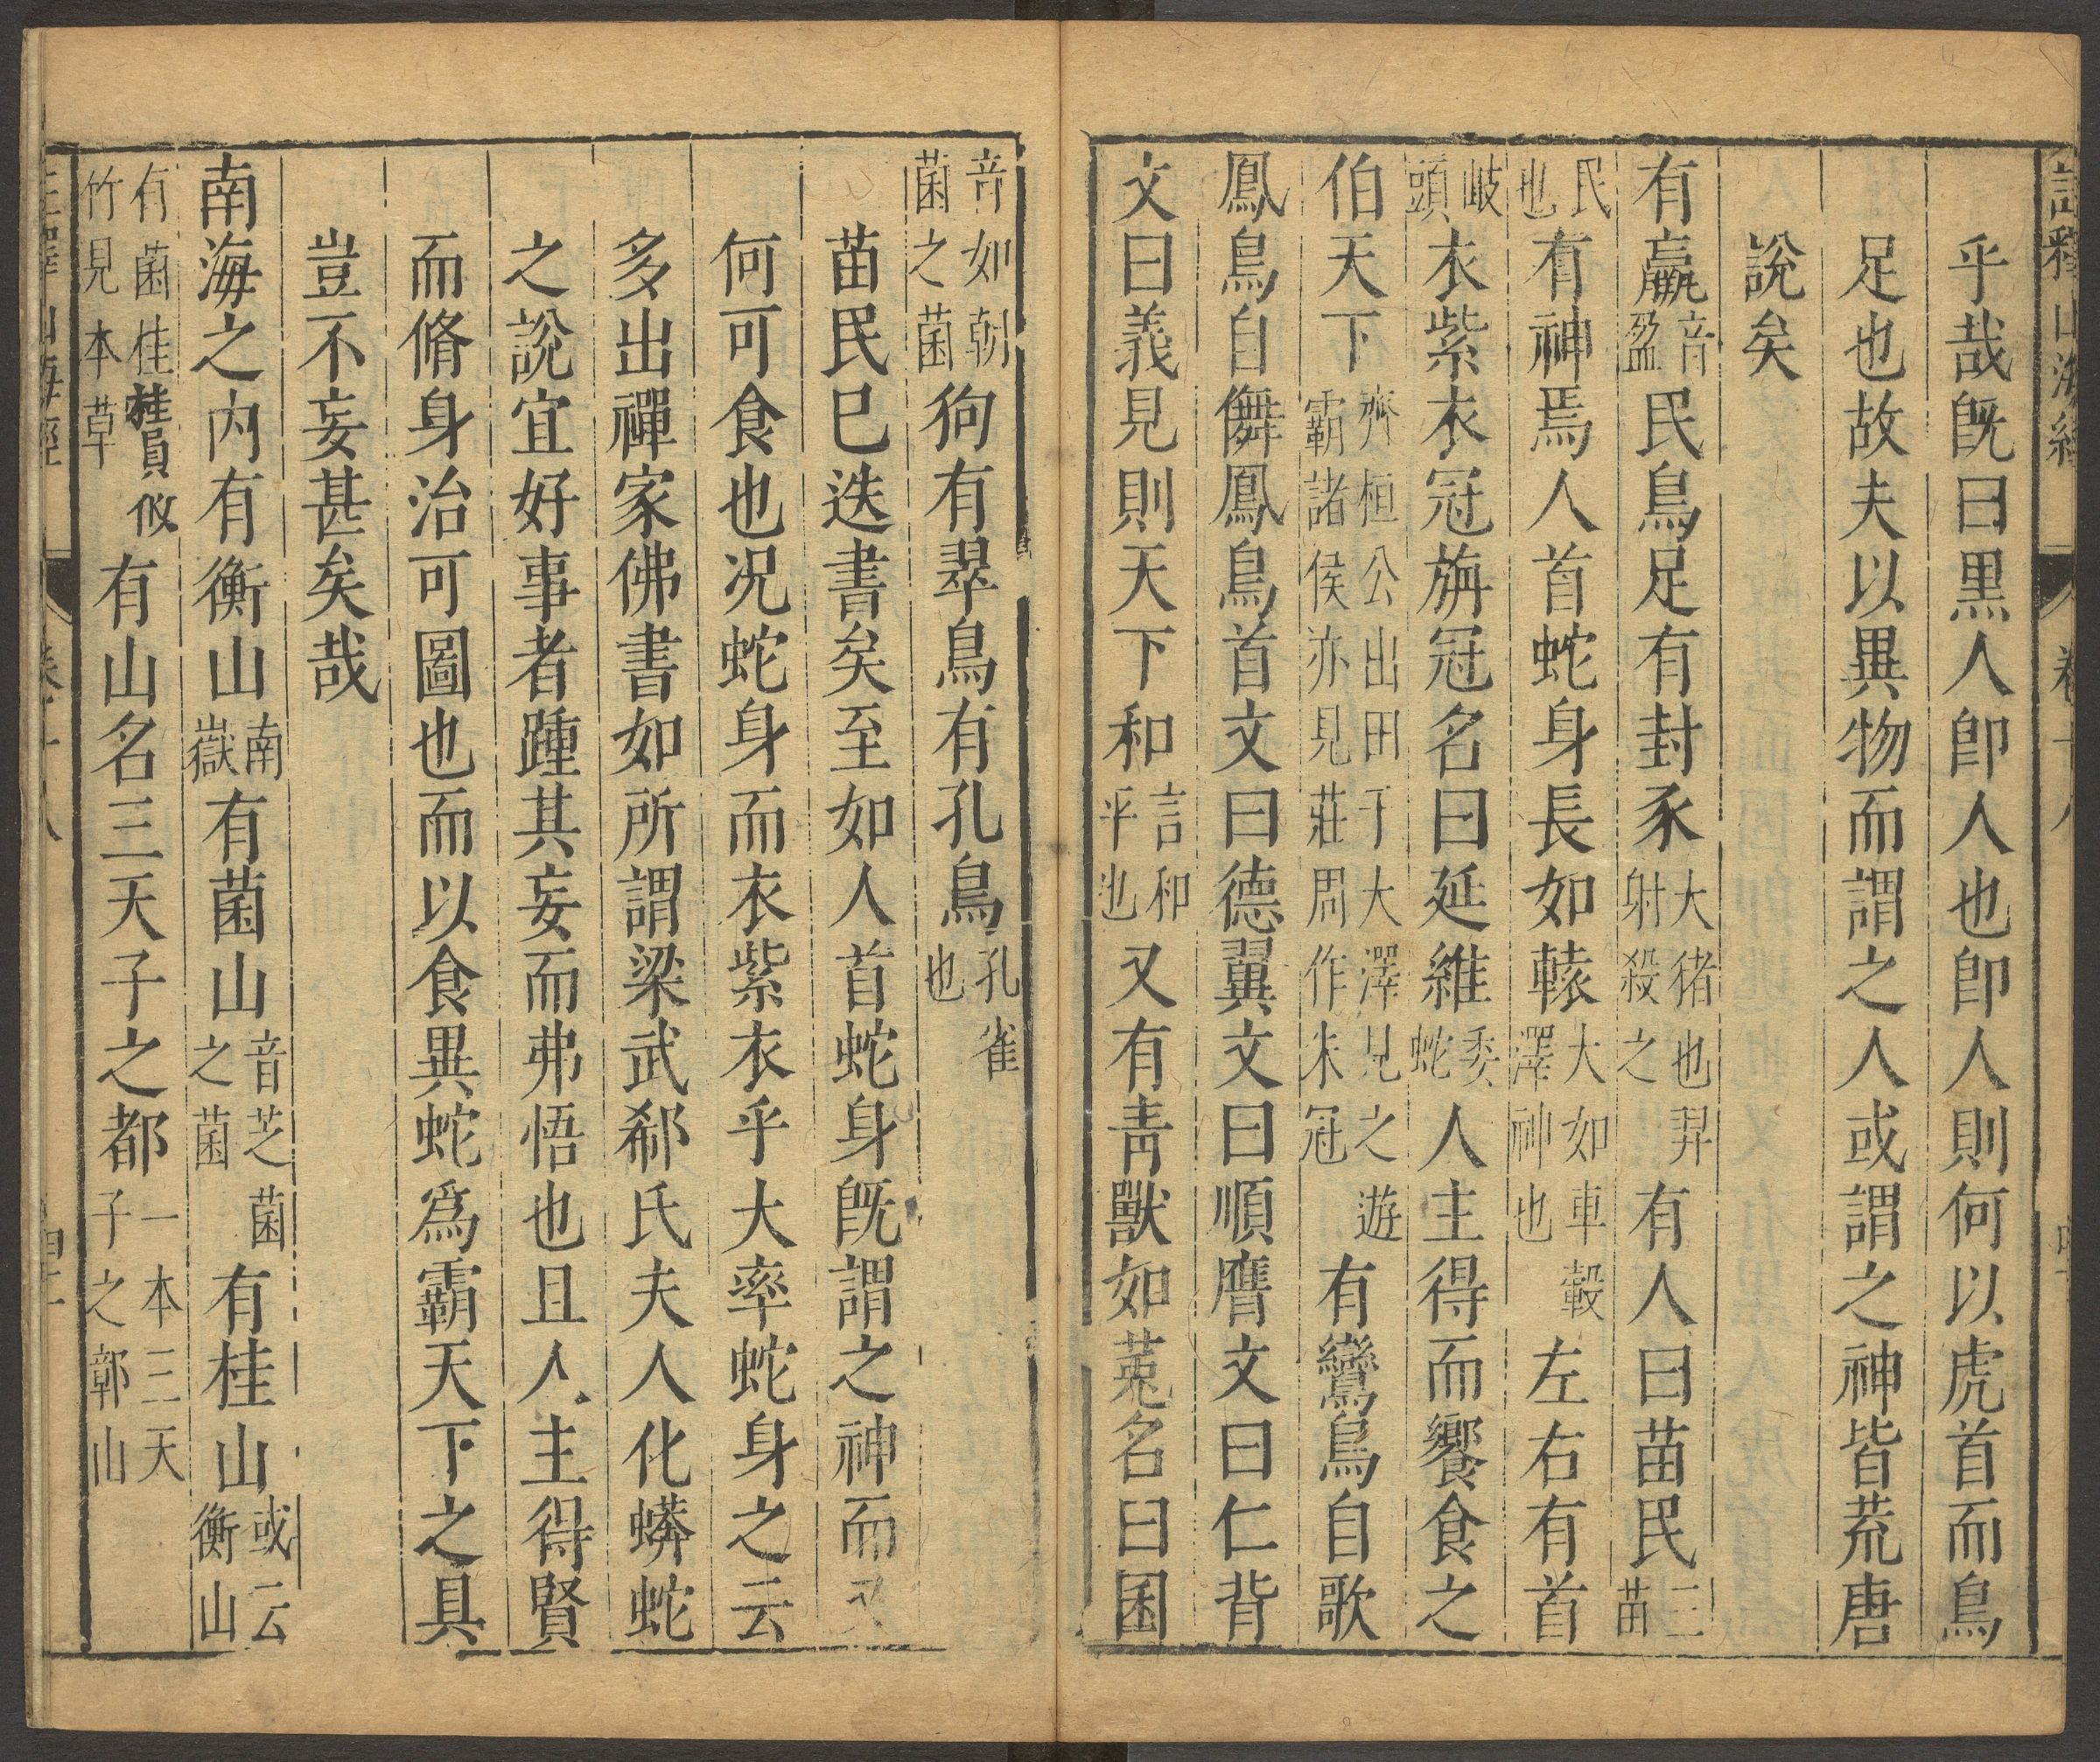 乎哉旣曰黒人卽人也卽人則何以虎首而鳥
足也故夫以異物而謂之人或謂之神皆荒唐
說矣
有嬴音盈民鳥足有封豕大猪也羿射殺之有人曰苗民三苗
民也有神焉人首蛇身長如轅大如車轂澤神也左右有首
岐頭衣紫衣冠旃冠名曰延維委蛇人主得而饗食之
伯天下齊桓公出田于大澤見之遊霸諸侯亦見莊周作朱冠有鸞鳥自歌
鳳鳥自儛鳳鳥首文曰德翼文曰順膺文曰仁背
文曰義見則天下和言和平也又有青獸如菟名曰囷
音如朝菌之菌狗有翠鳥有孔鳥孔雀也
苗民巳迭書矣至如人首蛇身旣謂之神而又
何可食也况蛇身而衣紫衣乎大率蛇身之云
多出禪家佛書如所謂梁武郗氏夫人化蟒蛇
之說宜好事者踵其妄而弗悟也且人主得賢
而脩身治可圖也而以食異蛇爲霸天下之具
豈不妄甚矣哉
南海之内有衡山南嶽有菌山音芝菌之菌有桂山或云衡山
有菌桂桂員似竹見本草有山名三天子之都一本三天子之鄣山